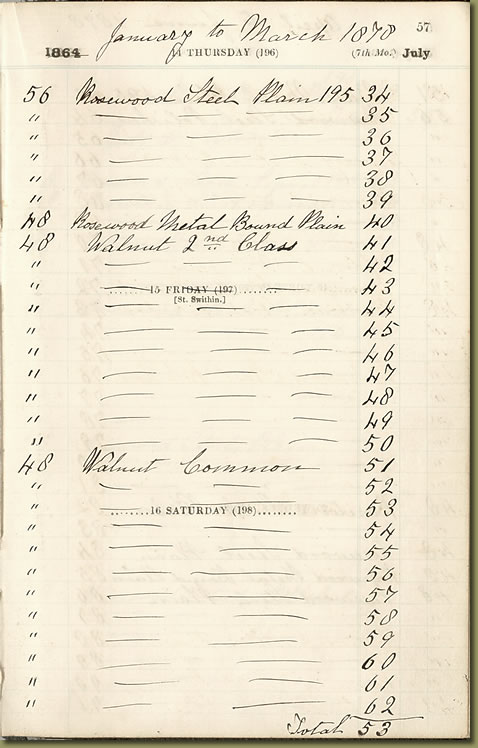 January to March 1878 57
1864 14 THURSDAY (196) (7th Mo.) July
56 Rosewood Steel Plain 195 34
" — — — 35
" — — — 36
" — — — 37
" — — — 38
" — — — 39
48 Rosewood Metal Bound Plain 40
48 Walnut 2nd Class 41
" — — — 42
" ........15 FRIDAY (197)........ 43
[St. Swithin.]
" — — — 44
" — — — 45
" — — — 46
" — — — 47
" — — — 48
" — — — 49
" — — — 50
48 Walnut Common 51
" — — 52
" ........16 SATURDAY (198)........ 53
" — — 54
" — — 55
" — — 56
" — — 57
" — — 58
" — — 59
" — — 60
" — — 61
" — — 62
Total 53